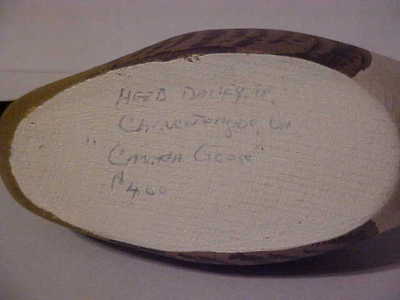 HERB DAISEY, JR.
CHINCOTEAGUE, VA
"CANADA GOOSE"
$4.00